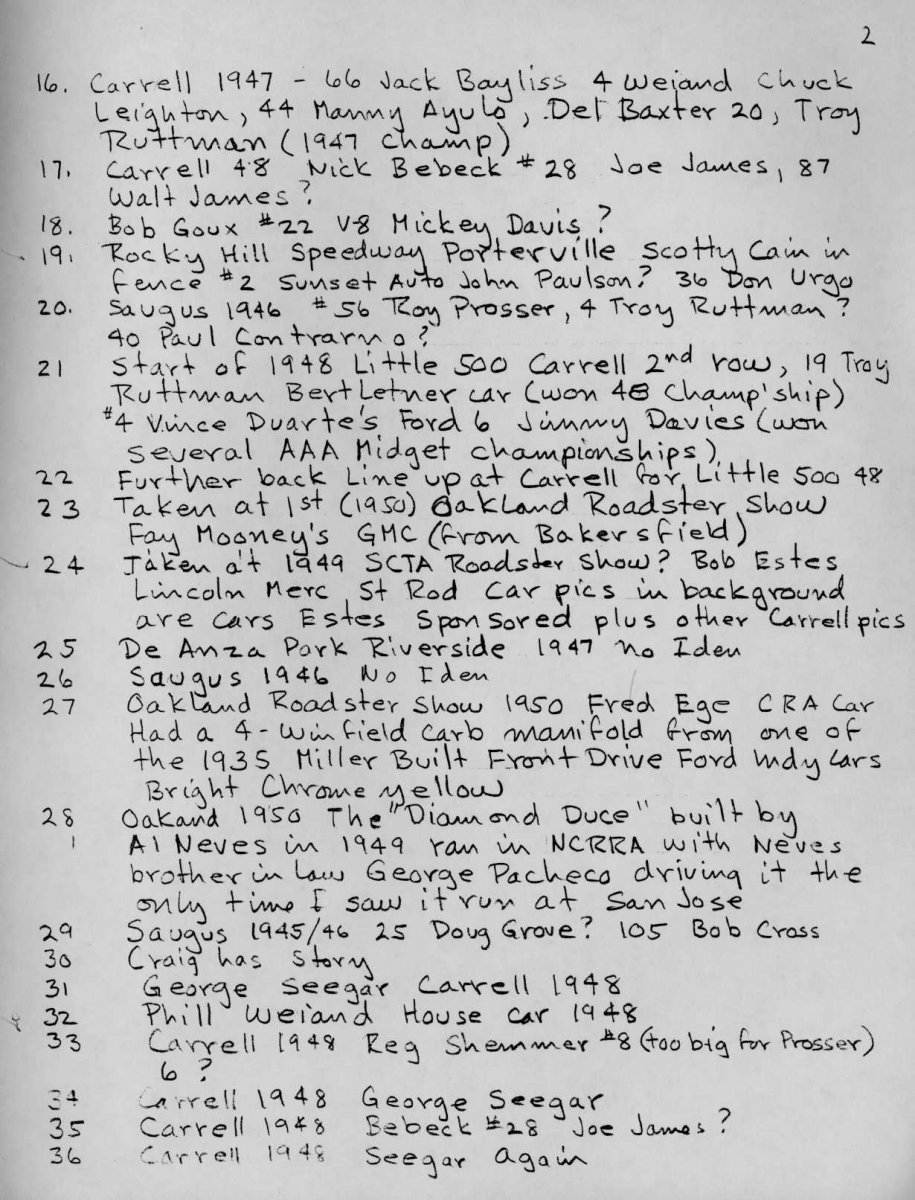 2
16. Carrell 1947 - 66 Jack Bayliss 4 Weiand Chuck
Leighton, 44 Manny Ayulo, Del Baxter 20, Troy
Ruttman (1947 champ)
17. Carrell 48 Nick Bebeck #28 Joe James, 87
Walt James?
18. Bob Goux #22 V-8 Mickey Davis?
19. Rocky Hill Speedway Porterville Scotty Cain in
fence #2 Sunset Auto John Paulson? 36 Don Urgo
20. Saugus 1946 #56 Roy Prosser, 4 Troy Ruttman?
40 Paul Contrarno?
21 Start of 1948 Little 500 Carrell 2nd row, 19 Troy
Ruttman Bert Letner car (won 48 Champ'ship)
#4 Vince Duarte's Ford 6 Jimmy Davies (won
several AAA Midget championships)
22 Further back Line up at Carrell for Little 500 48
23 Taken at 1st (1950) Oakland Roadster Show
Fay Mooney's GMC (from Bakersfield)
24 Taken at 1949 SCTA Roadster Show? Bob Estes
Lincoln Merc St Rod Car pics in background
are cars Estes Sponsored plus other Carrell pics
25 De Anza Park Riverside 1947 no Iden
26 Saugus 1946 No Iden
27 Oakland Roadster Show 1950 Fred Ege CRA Car
Had a 4-Winfield Carb manifold from one of
the 1935 Miller Built Front Drive Ford Indy Cars
Bright Chrome yellow
28 Oakand 1950 The "Diamond Duce" built by
Al Neves in 1949 ran in NCRRA with Neves
brother in law George Pacheco driving it the
only time I saw it run at San Jose
29 Saugus 1945/46 25 Doug Grove? 105 Bob Cross
30 Craig has Story
31 George Seegar Carrell 1948
32 Phill Weiand House car 1948
33 Carrell 1948 Reg Shemmer #8 (too big for Prosser)
6?
34 Carrell 1948 George Seegar
35 Carrell 1948 Bebeck #28 Joe James?
36 Carrell 1948 Seegar Again